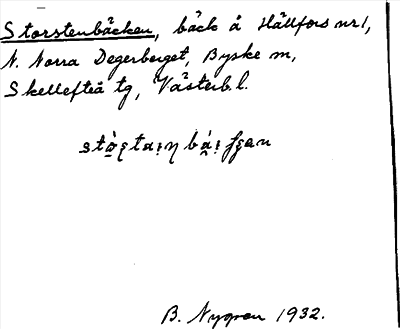 Storstenbäcken, bäck å Hällfors nr 1,
N. Norra Degerberget, Byske sn,
Skellefteå tg, Västerb. l.
B. Nygren 1932.